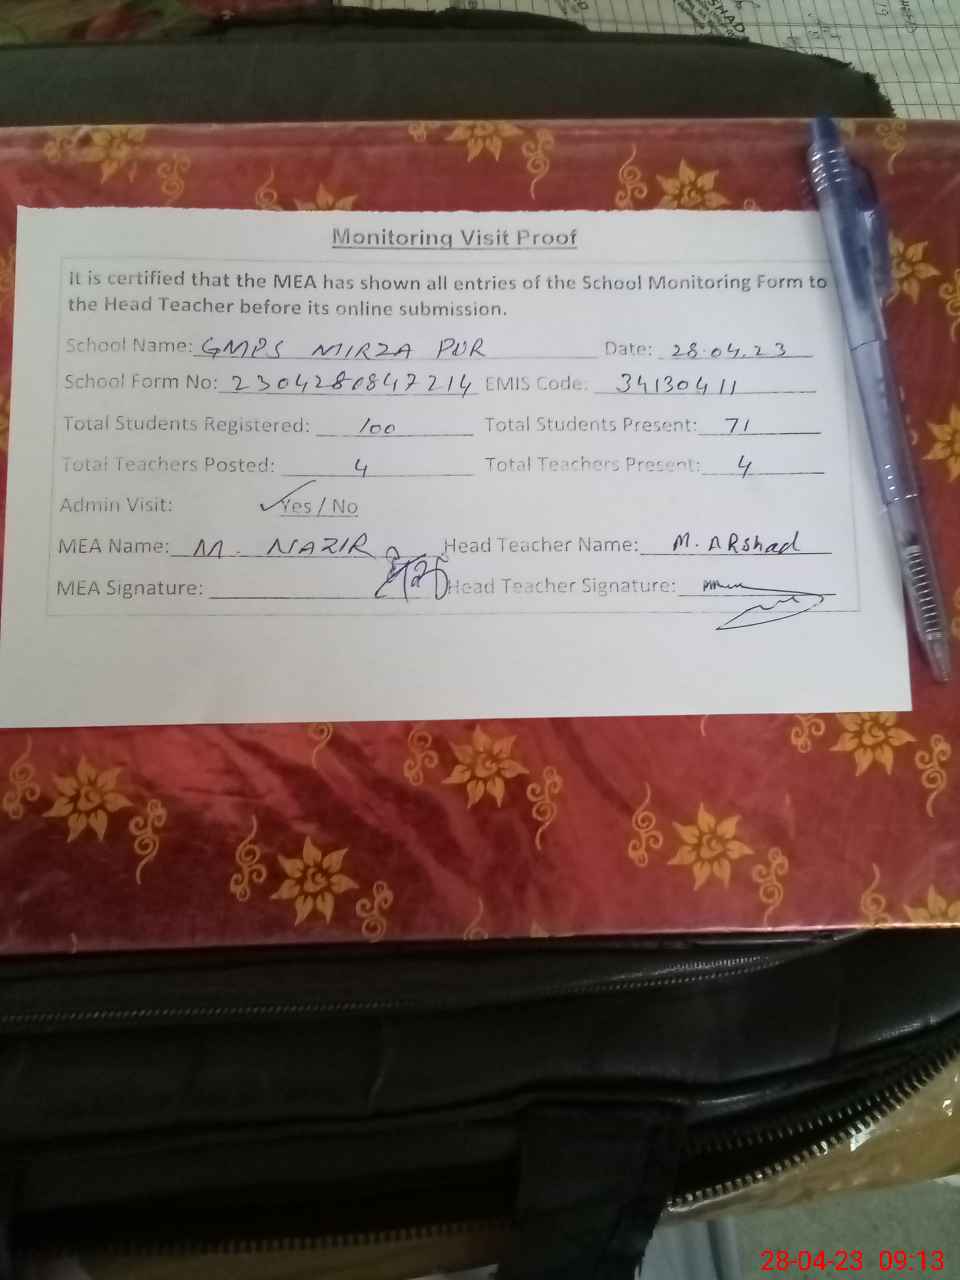 SHAD
Monitoring Visit Proof
It is certified that the MEA has shown all entries of the School Monitoring Form to
the Head Teacher before its online submission.
School Name: GMPS MIRZA PUR Date: 28.04.23
School Form No: 2304280847214 EMIS Code: 34130411
Total Students Registered: 100 Total Students Present: 71
Total Teachers Posted: 4 Total Teachers Present: 4
Admin Visit: Yes / No
MEA Name: M. NAZIR Head Teacher Name: M. ARshad
MEA Signature: Head Teacher Signature:
28-04-23 09:13